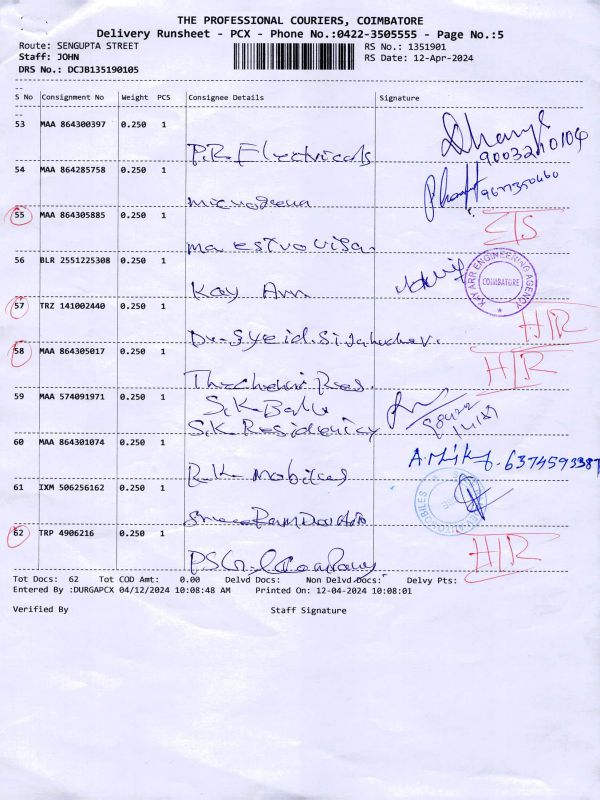 THE PROFESSIONAL COURIERS, COIMBATORE
Delivery Runsheet - PCX - Phone No.:0422-3505555 - Page No.:5
Route: SENGUPTA STREET
RS No.: 1351901
Staff: JOHN
RS Date: 12-Apr-2024
DRS No.: DCJB135190105
S No Consignment No Weight PCS Consignee Details Signature
53 MAA 864300397 0.250 1
P.R Electricals
90032
54 MAA 864285758 0.250 1
55 MAA 864305885 0.250 1
maestro visa
56 BLR 2551225308 0.250 1
Kay Arr
KAY ARR ENGINEERING AGENCY
COIMBATORE
57 TRZ 141002440 0.250 1
Dr. Syeid.
H/R
58 MAA 864305017 0.250 1
Res.
H/R
59 MAA 574091971 0.250 1
S.K Balu
S.K Residenicy
60 MAA 864301074 0.250 1
R.K mobiles
6374593387
61 IXM 506256162 0.250 1
Sree Ram
62 TRP 4906216 0.250 1
PSG
H/R
Tot Docs: 62 Tot COD Amt: 0.00 Delvd Docs: Non Delvd Docs: Delvy Pts:
Entered By :DURGAPCX 04/12/2024 10:08:48 AM Printed On: 12-04-2024 10:08:01
Verified By Staff Signature